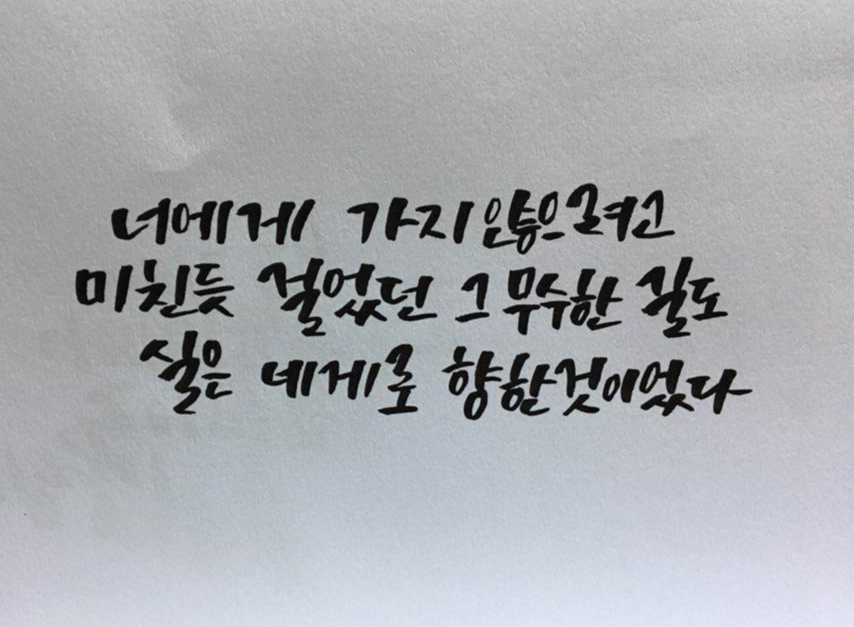 너에게 가지 않으려고
미친듯 걸었던 그 무수한 길도
실은 네게로 향한것이었다